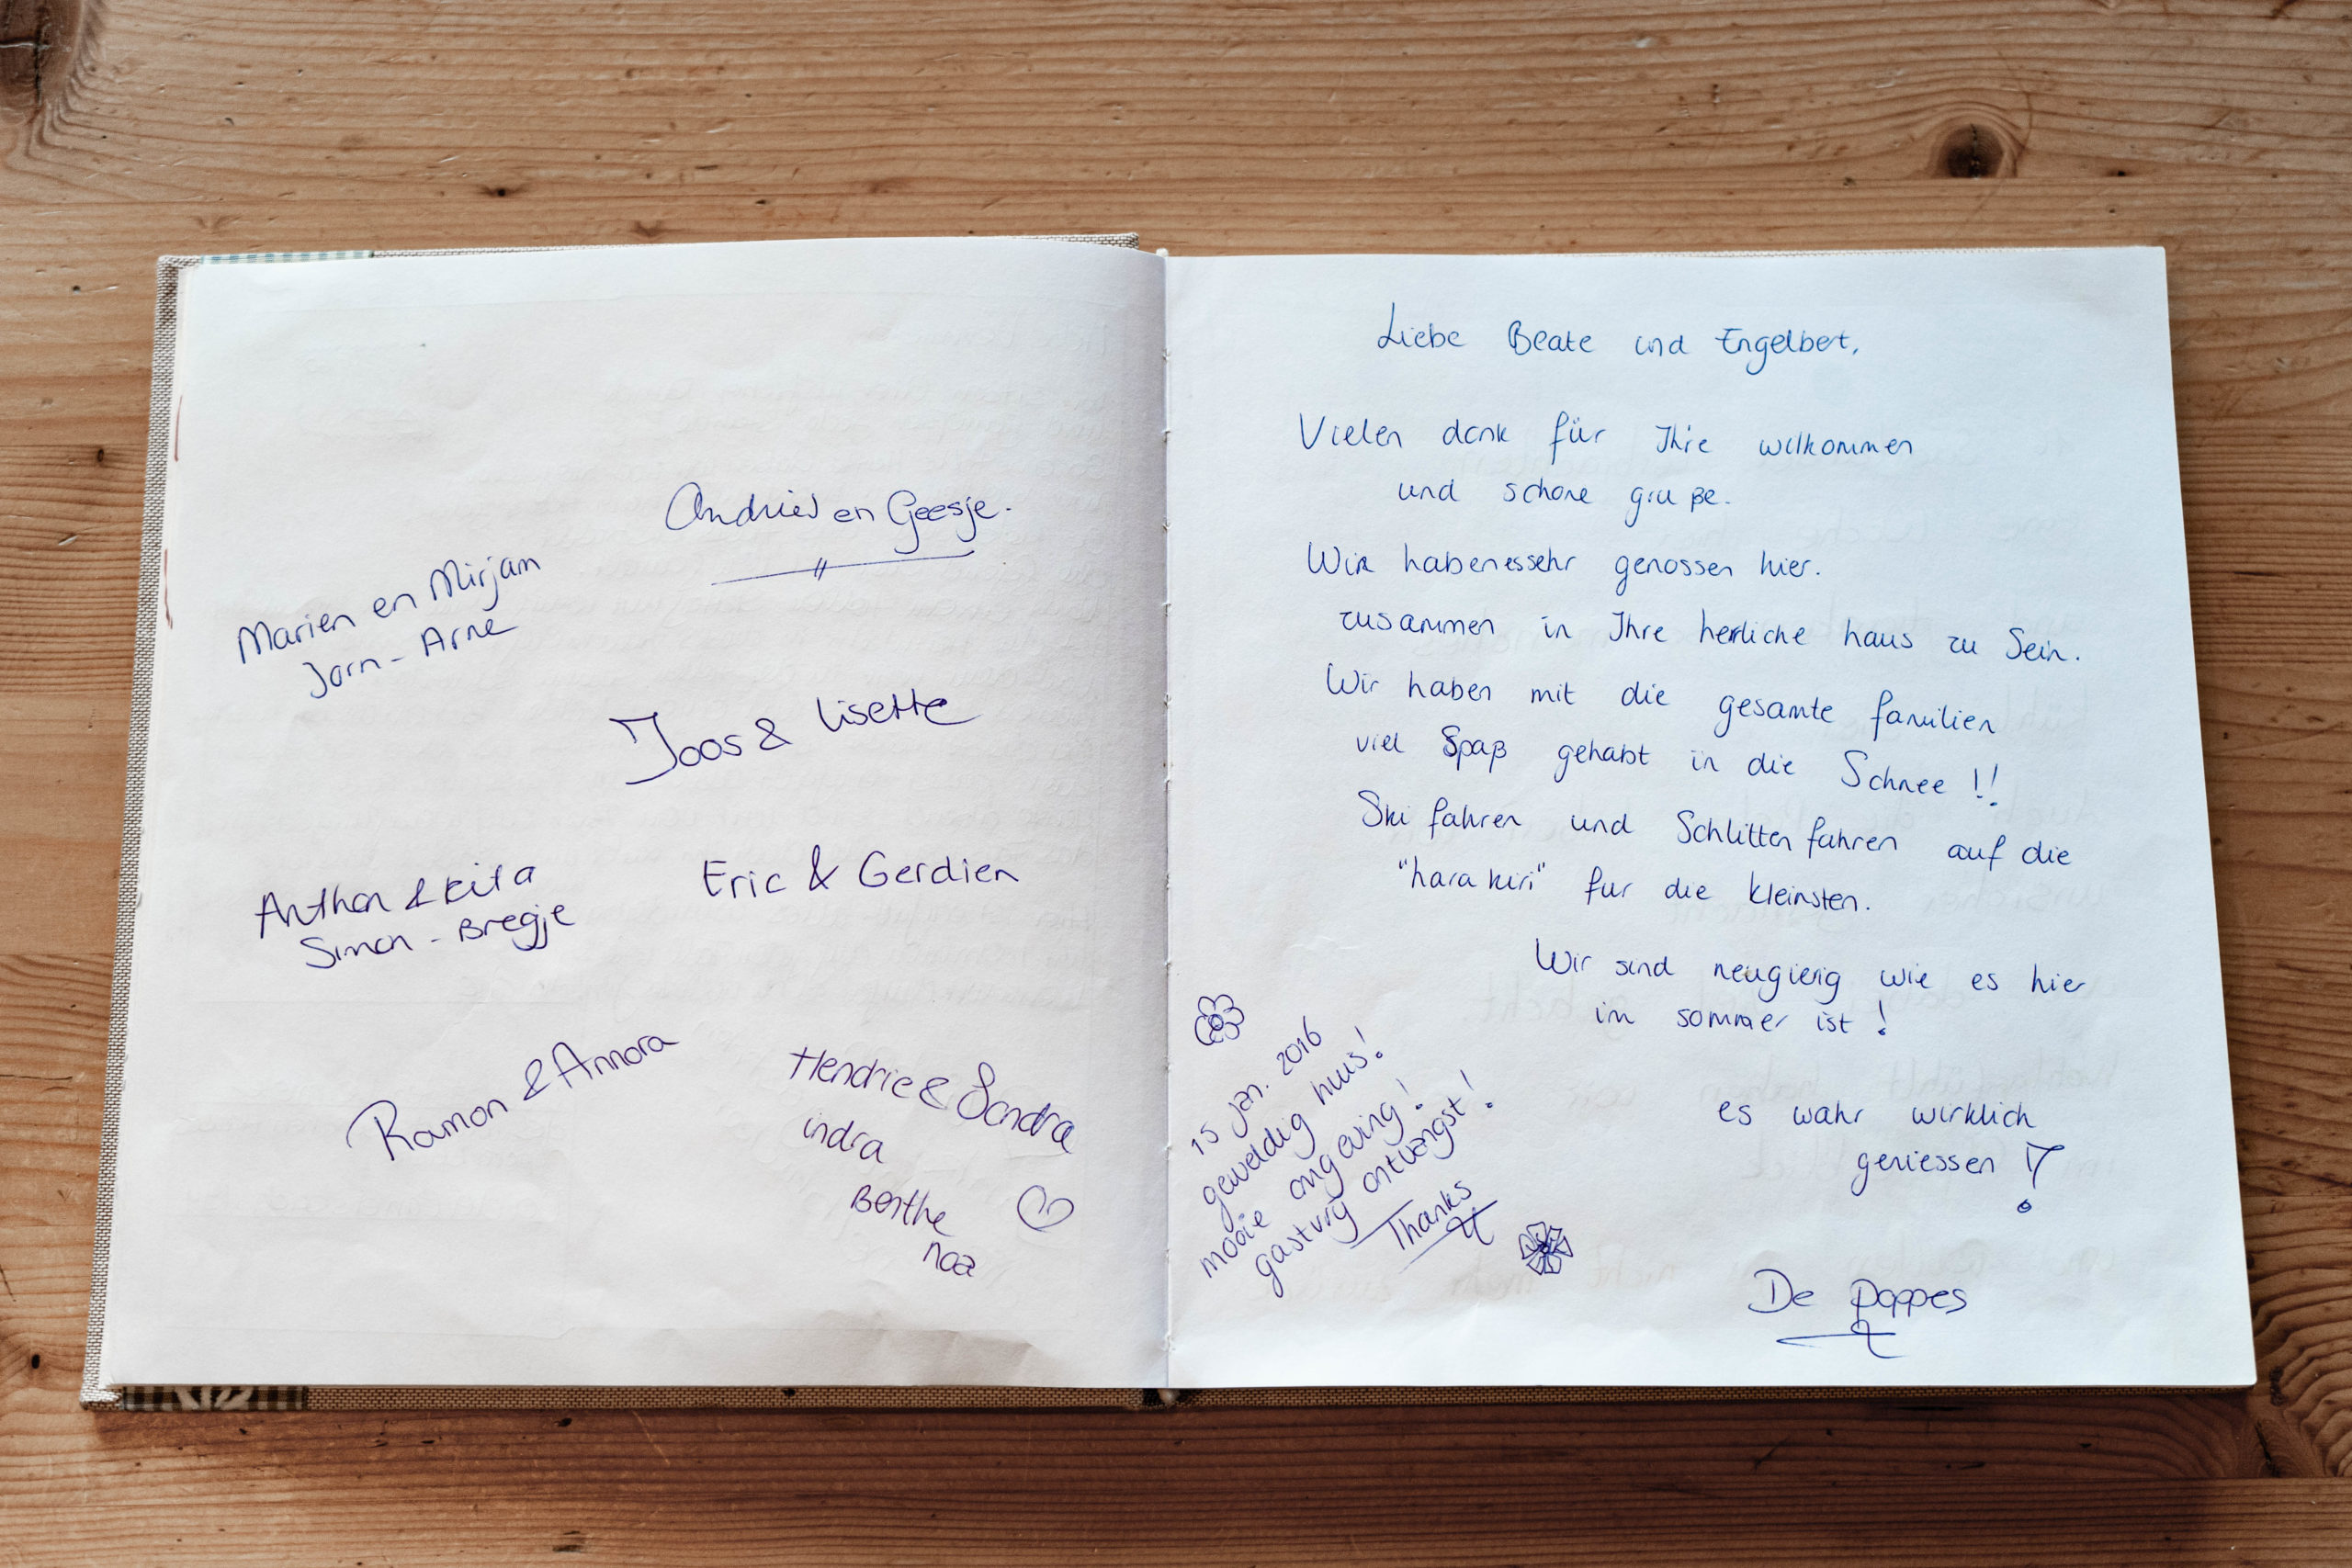 Andries en Geesje.
Marien en Mirjam
Jorn - Arne
Joos & Lisette
Anthon & Rita
Simon - Bregje
Eric & Gerdien
Ramon & Annora
Hendrie & Sandra
indra
Benthe
noa
Liebe Beate und Engelbert,
Vielen dank für Ihre wilkommen
und schone gruße.
Wir haben es sehr genossen hier.
zusammen in Ihre herliche haus zu Sein.
Wir haben mit die gesamte familien
viel Spaß gehabt in die Schnee !!
Ski fahren und Schlitten fahren auf die
"hara kiri" fur die kleinsten.
Wir sind neugierig wie es hier
im sommer ist !
es wahr wirklich
geniessen !
De Poppes
15 jan. 2016
geweldig huis!
mooie omgeving!
gastvrij ontvangst!
Thanks